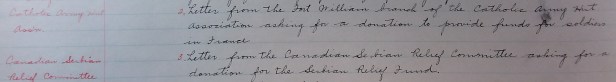 Catholic Army Hut
Assn.
2. Letter from the Fort William branch of the Catholic Army Hut
Association asking for a donation to provide funds for soldiers
in France
Canadian Serbian
Relief Committee
3. Letter from the Canadian Serbian Relief Committee asking for a
donation for the Serbian Relief Fund.